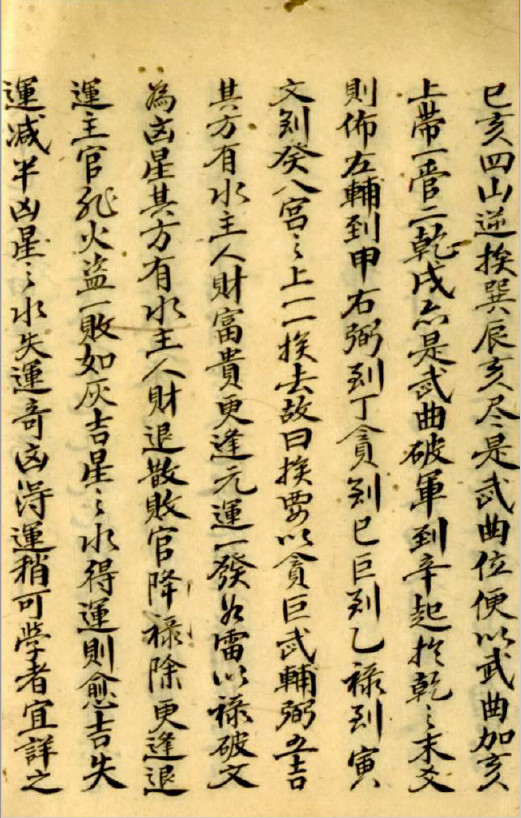 巳亥四山逆挨巽辰亥尽是武曲位便以武曲加亥
上帶一管二乾戌亦是武曲破軍到辛起於乾〻末爻
則佈左輔到申右弼到丁貪到巳巨到乙禄到寅
文到癸八宫〻上一一挨去故曰挨要以貪巨武輔弼五吉
其方有水主人財富貴更逢元運一發如雷以禄破文
為凶星其方有水主人財退散敗官降禄除更逢退
運主官非火盗一敗如灰吉星〻水得運則愈吉失
運减半凶星〻水失運竒凶得運稍可學者宜詳之